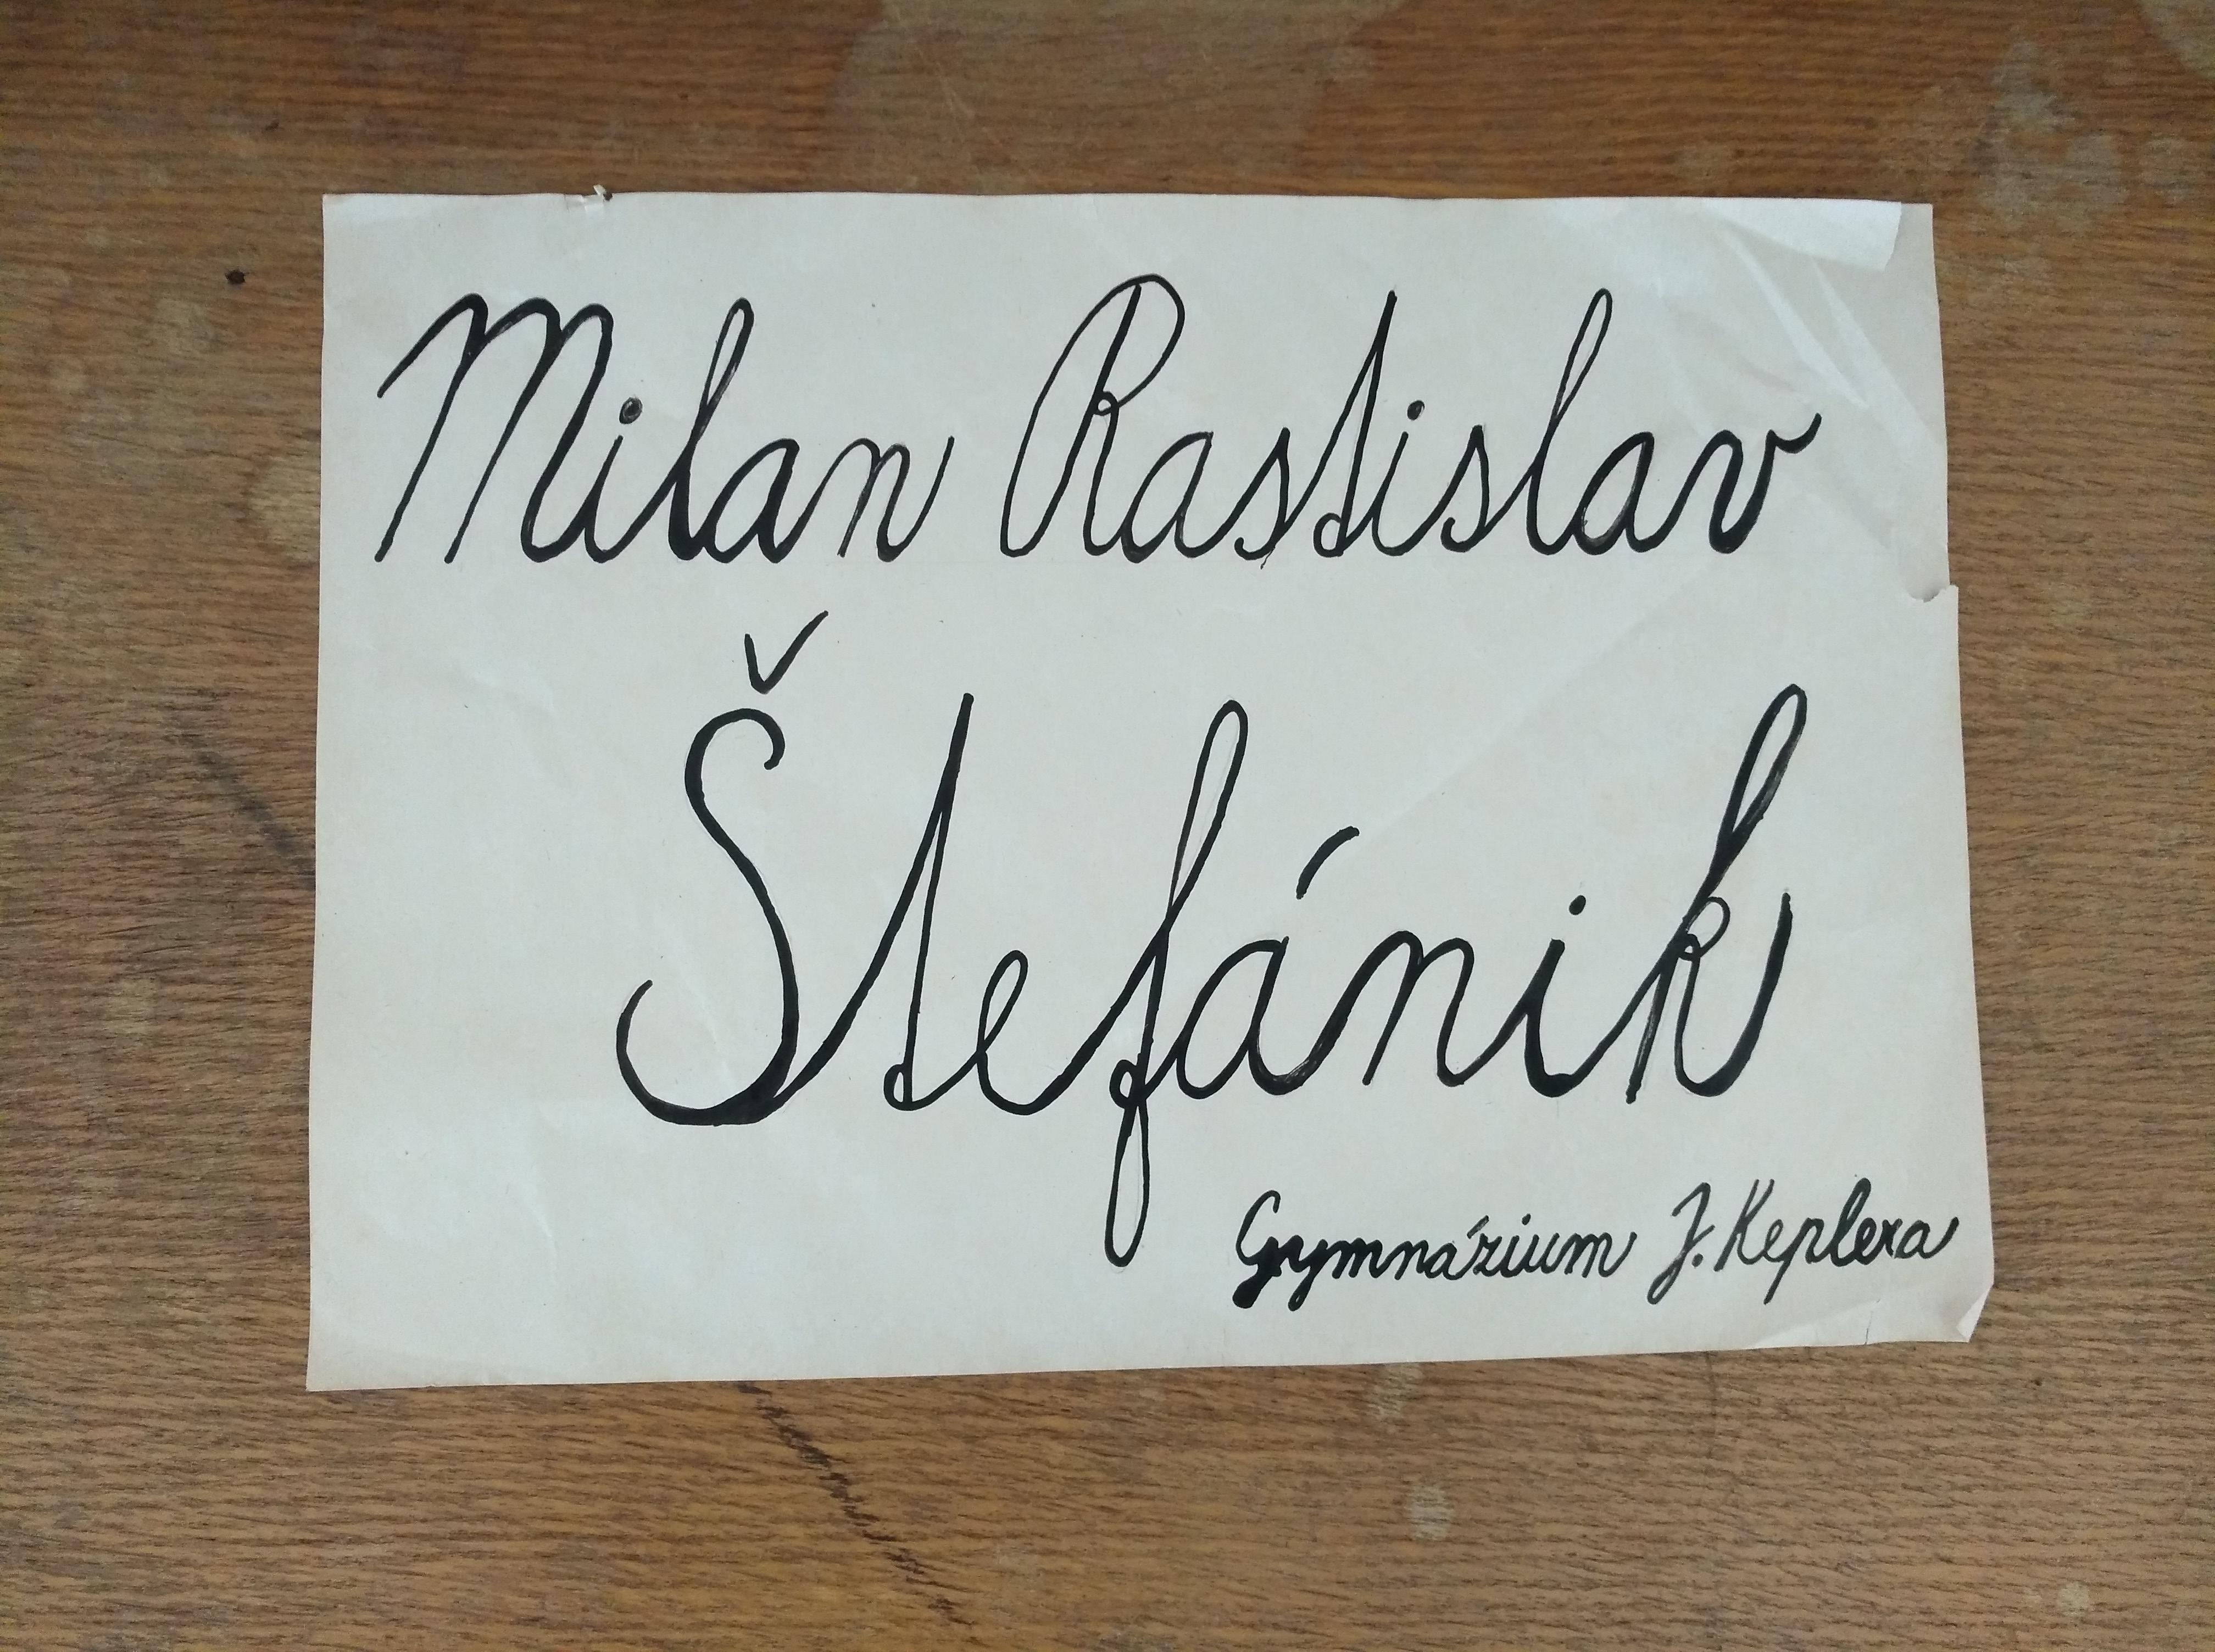 Milan Rastislav
Štefánik
Gymnázium J. Keplera